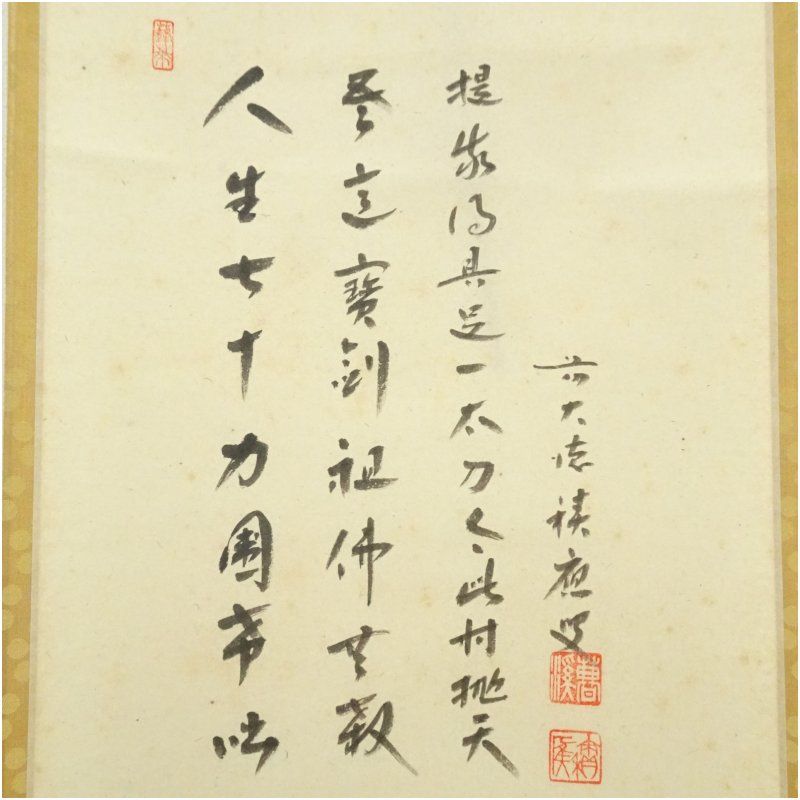 人生七十力圍希咄
吾這寶劍祖佛共殺
提我得具足一太刀今此時抛天
前大徳積應叟